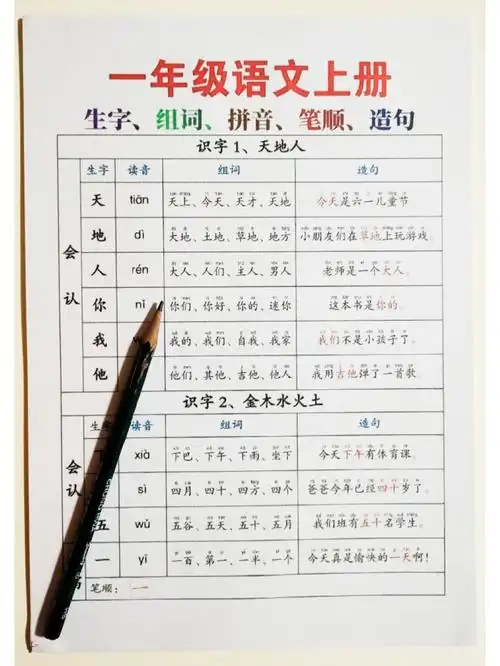 一年级语文上册
生字、组词、拼音、笔顺、造句
识字1、天地人
生字 读音 组词 造句
会认
天 tiān 天上、今天、天才、天地 今天是六一儿童节
地 dì 大地、土地、草地、地方 小朋友们在草地上玩游戏。
人 rén 大人、人们、主人、男人 老师是一个大人。
你 nǐ 你们、你好、你的、迷你 这本书是你的。
我 我的、我们、自我、我家 我们不是小孩子了。
他 他们、其他、吉他、他人 我用吉他弹了一首歌
识字2、金木水火土
生字 读音 组词 造句
会认
下 xià 下巴、下午、下雨、坐下 今天下午有体育课。
sì 四月、四十、四方、四个 爸爸今年已经四十岁了。
五 wǔ 五谷、五天、五十、五月 我们班有五十名学生。
一 yī 一百、第一、一半、一个 今天真是愉快的一天啊!
笔顺: 一